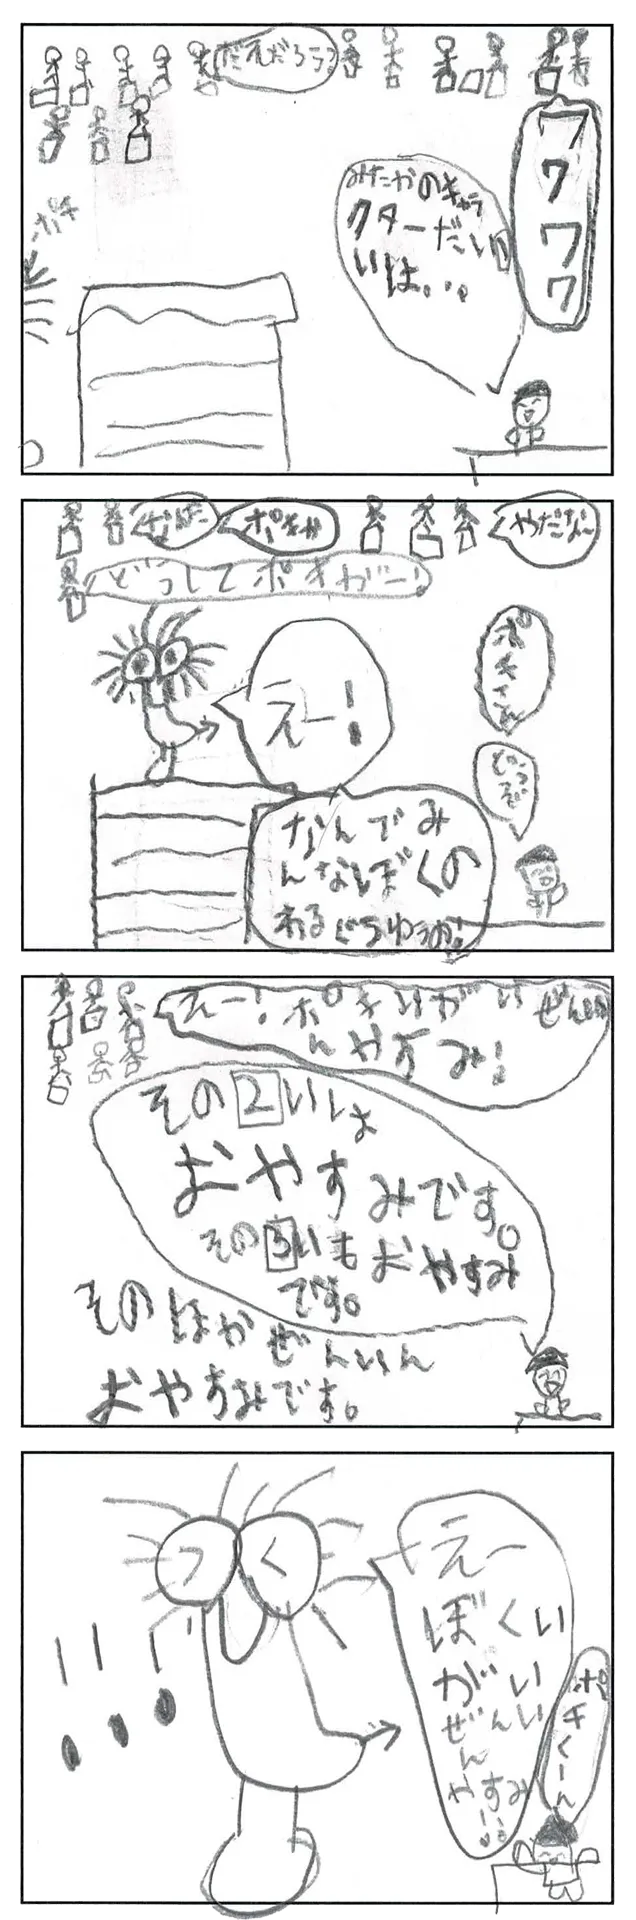 だえだろう?
ワワワワ
みたかのキャラ
クターだい1
いは。。。
ポキ
なはー
ポキか
やだなー
どうしてポキがー!
ポキさん
どうぞ
えー!
なんでみ
んなぼくの
わるぐちゆうの!
えー!ポキいがいぜんいん
やすみ!
その2いは
おやすみです。
その3いもおやすみ
です。
そのほかぜんいん
おやすみです。
えー
ぼくい
がい
ぜんいん
やすみ!!
ポキくーん